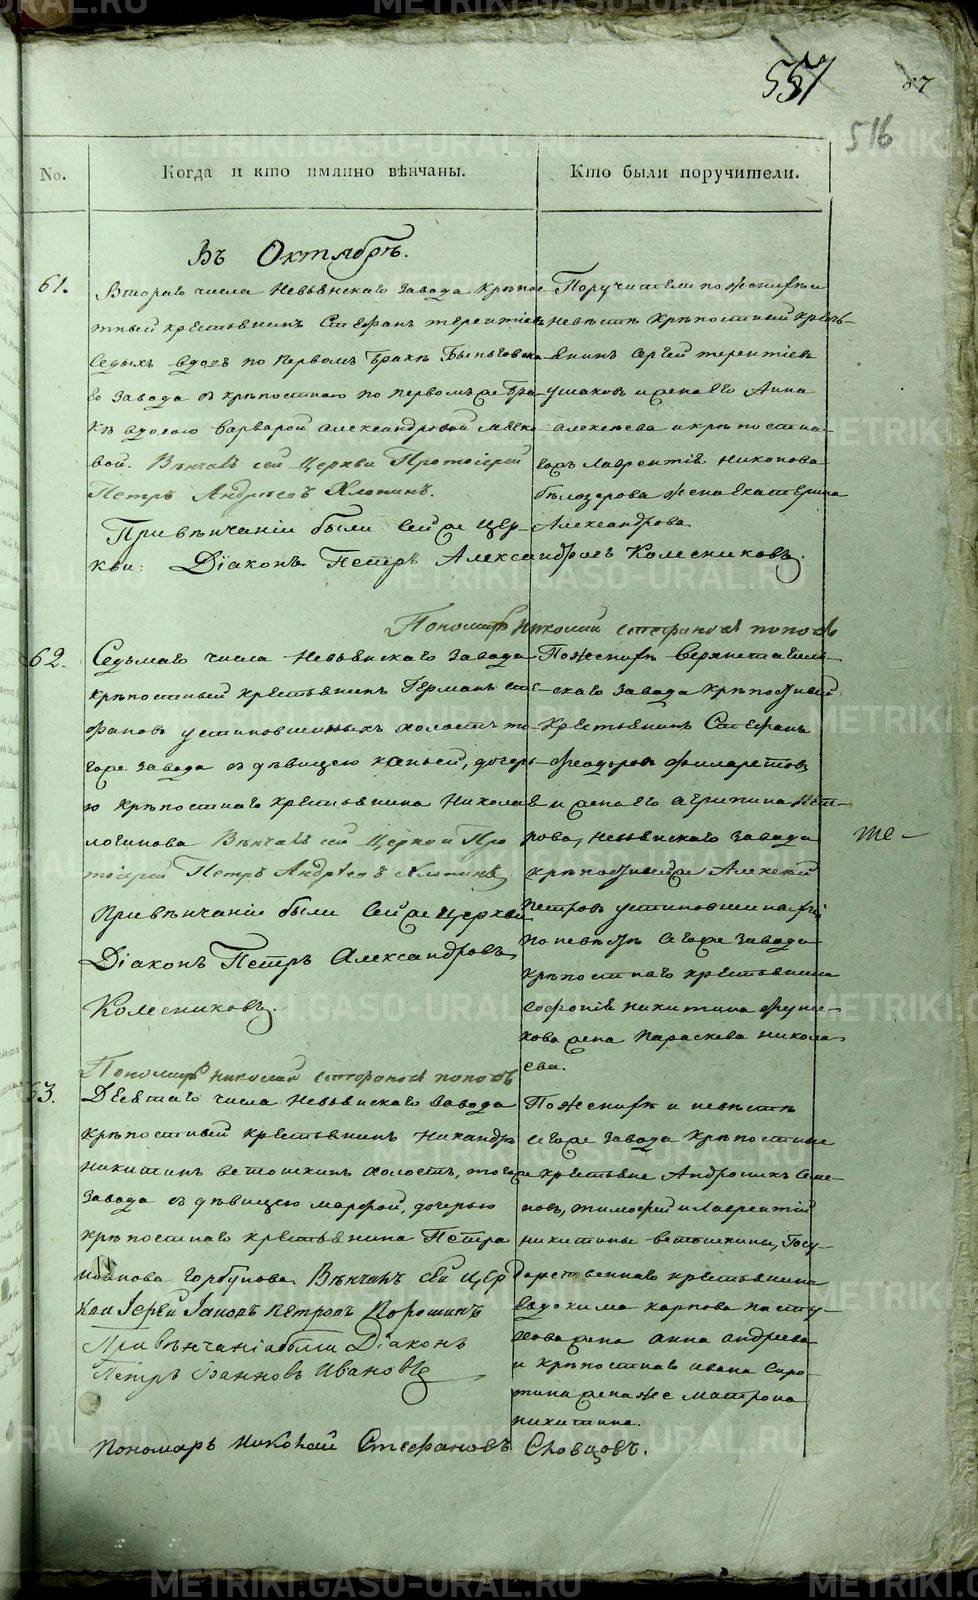 557
57
516
No.
Когда и кто имянно вѣнчаны.
Кто были поручители.
Въ Октябрѣ.
61.
Втораго числа Невьянскаго завода крѣпос-
тный крестьянинъ Стефанъ терентіевъ
Седыхъ вдовъ по первомъ бракѣ Быньговска-
го завода съ крѣпостною по первомъ же бра-
кѣ вдовою варварой александровой
вой. Вѣнчалъ сей Церкви Протоіерей
Петръ Андреевъ Хлопинъ.
При вѣнчаніи были Сей же Цер-
кви: Діаконъ Петръ Александровъ Колесниковъ.
Пономарь Николай стефановъ поповъ
Поручители по женихѣ и
невѣстѣ крѣпостный кресть-
янинъ Сергей терентіевъ
ушаковъ и жена его Анна
алексѣева и крѣпостна-
го Лаврентія никонова
бѣлозерова жена екатерина
Александрова
62.
Седьмаго числа Невьянскаго завода
крѣпостный крестьянинъ Германъ сте-
фановъ устиновшиныхъ холостъ то-
гоже завода съ дѣвицею ксеньей, дочерь-
ю крѣпостнаго крестьянина Николая
логинова Вѣнчалъ сей Церкви Про
тоіерей Петръ Андреевъ Хлопинъ
При вѣнчаніи были Сей же Церкви
Діаконъ Петръ Александровъ
Колесниковъ.
Пономарь николай стефановъ поповъ
По женихѣ верхнетагиль-
скаго завода крѣпостный
крестьянинъ Стефанъ
феодоровъ филаретовъ
и жена его агрипина Пет-
рова, невьянскаго завода
крѣпостный же Алексей
петровъ устиновшиныхъ
по невѣстѣ сегоже завода
крѣпостнаго крестьянина
Софонія никитина
кова жена Параскева никола-
ева.
те
63.
Десятаго числа Невьянскаго завода
крѣпостный крестьянинъ Никандръ
никитинъ ветошкинъ холостъ, тогоже
завода съ дѣвицею марфой, дочерью
крѣпостнаго крестьянина Петра
иванова горбунова Вѣнчалъ Сей Цер
кви Іерей Іаковъ Петровъ Порошинъ
При вѣнчаніи были Діаконъ
Петръ Іоанновъ Ивановъ
По женихѣ и невѣстѣ
сегоже завода крѣпостные
крестьяне Андроникъ Семе-
новъ, тимофей и Лаврентій
никитины ветошкины, Госу-
дарственнаго крестьянина
Евдокима карпова пасту-
хова жена анна андреева
и крѣпостнаго ивана Сиро-
тина жена же матрона
никитина.
Пономарь Николай Стефановъ Словцовъ.
METRIKI.GASO-URAL.RU